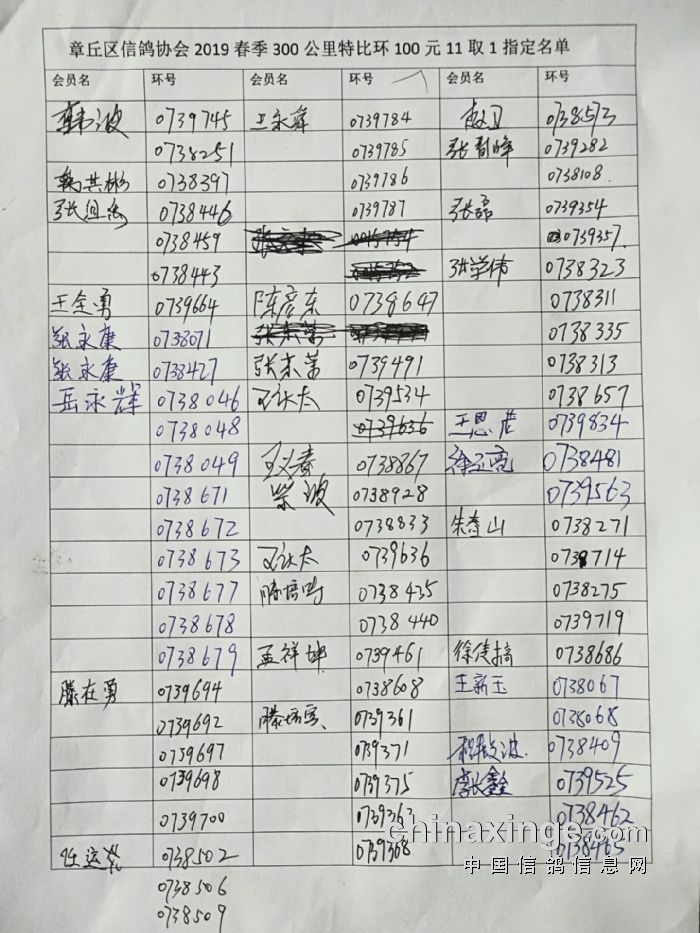 章丘区信鸽协会2019春季300公里特比环100元11取1指定名单
会员名 环号 会员名 环号 会员名 环号
0739745 王永舜 0739784 赵卫 0738573
0738251 0739785 张 峰 0739282
韩其彬 0738397 0739786 0738108
张 0738446 0739787 张磊 0739354
0738459 0739357
0738443 张学伟 0738323
王全勇 0739664 陈彦东 0738647 0738311
张永康 0738071 0738335
张永康 0738427 张东荣 0739491 0738313
岳永辉 0738046 0739534 0738657
0738048 0739636 王恩 0739834
0738049 0738867 徐 亮 0738481
0738671 柴波 0738928 0739563
0738672 0738833 朱春山 0738271
0738673 0739636 0738714
0738677 0738435 0738275
0738678 0738440 0739719
0738679 孟祥坤 0739461 徐 0738686
滕在勇 0739694 0738608 王新玉 0738067
0739692 滕 0739361 0738068
0739697 0739371 程 波 0738409
0739698 0739375 李长鑫 0739525
0739700 0739363 0738462
任运 0738502 0739368 0738465
0738506
0738509
chinaxinge.com
中国信鸽信息网